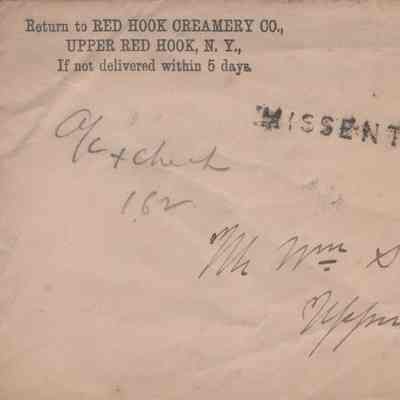 Return to RED HOOK CREAMERY CO.,
UPPER RED HOOK, N. Y.,
If not delivered within 5 days.
MISSENT
a/c + check
162
Mr Wm S
Upper